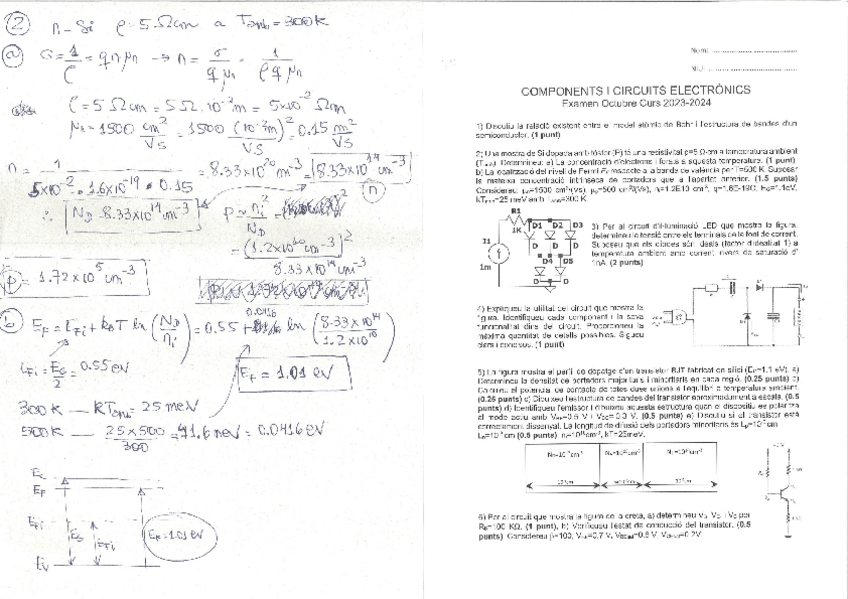 2 n-Si ρ=5Ωcm a Tamb=300K
a σ=1/ρ=qnμn → n=σ/qμn = 1/ρqμn
ρ=5Ωcm=5Ω·10⁻²m=5x10⁻²Ωm
μn=1500 cm²/VS=1500 (10⁻²m)²/VS=0.15 m²/VS
n= 1/5x10⁻²·1.6x10⁻¹⁹·0.15 = 8.33x10²⁰m⁻³=8.33x10¹⁴cm⁻³ n
∴ ND=8.33x10¹⁴cm⁻³ p=ni²/ND
=(1.2x10¹⁰cm⁻³)²/8.33x10¹⁴cm⁻³
p=1.72x10⁵cm⁻³
b EF=EFi+kBT ln(ND/ni)=0.55+0.0416 ln(8.33x10¹⁴/1.2x10¹⁰)
EFi=EG/2=0.55eV
EF=1.01 eV
300K — KTamb=25meV
500K — 25x500/300=41.6meV=0.0416eV
EC
EF
EFi
EG EFi EF=1.01eV
EV
Nom:
NIU:
COMPONENTS I CIRCUITS ELECTRÒNICS
Examen Octubre Curs 2023-2024
1) Discutiu la relació existent entre el model atòmic de Bohr i l'estructura de bandes d'un
semiconductor. (1 punt)
2) Una mostra de Si dopada amb fòsfor (P) té una resistivitat ρ=5 Ω·cm a temperatura ambient
(Tamb). Determineu: a) La concentració d'electrons i forats a aquesta temperatura. (1 punt)
b) La localització del nivell de Fermi EF respecte a la banda de valència per T=500 K. Suposar
la mateixa concentració intrínseca de portadors que a l'apartat anterior. (1.5 punts)
Considereu: μn=1500 cm²/(Vs), μp=500 cm²/(Vs), ni=1.2E10 cm⁻³, q=1.6E-19C, EG=1.1eV,
kTamb=25 meV amb Tamb=300 K.
R1
1K
I1
1m
D1 D2 D3
D D D
D4 D5
D D
3) Per al circuit d'il·luminació LED que mostra la figura,
determineu la tensió entre els terminals de la font de corrent.
Suposeu que els díodes són ideals (factor d'idealitat 1) a
temperatura ambient amb corrent invers de saturació d'
1nA. (2 punts)
4) Expliqueu la utilitat del circuit que mostra la
figura. Identifiqueu cada component i la seva
funcionalitat dins del circuit. Proporcioneu la
màxima quantitat de detalls possibles. Sigueu
clars i concisos. (1 punt)
5) La figura mostra el perfil de dopatge d'un transistor BJT fabricat en silici (EG=1.1 eV). a)
Determineu la densitat de portadors majoritaris i minoritaris en cada regió. (0.25 punts) b)
Calculeu el potencial de contacte de totes dues unions a l'equilibri a temperatura ambient.
(0.25 punts) c) Dibuixeu l'estructura de bandes del transistor aproximadament a escala. (0.5
punts) d) Identifiqueu l'emissor i dibuixeu aquesta estructura quan el dispositiu es polaritza
(0.5 punts) e) Discutiu si el transistor està
correctament dissenyat. La longitud de difusió dels portadors minoritaris és
(0.5 punts). kT=25meV.
6) Per al circuit que mostra la figura de la dreta, a) determineu per
RB=100 KΩ, (1 punt), b) Verifiqueu l'estat de conducció del transistor. (0.5
punts). Considereu β=100,